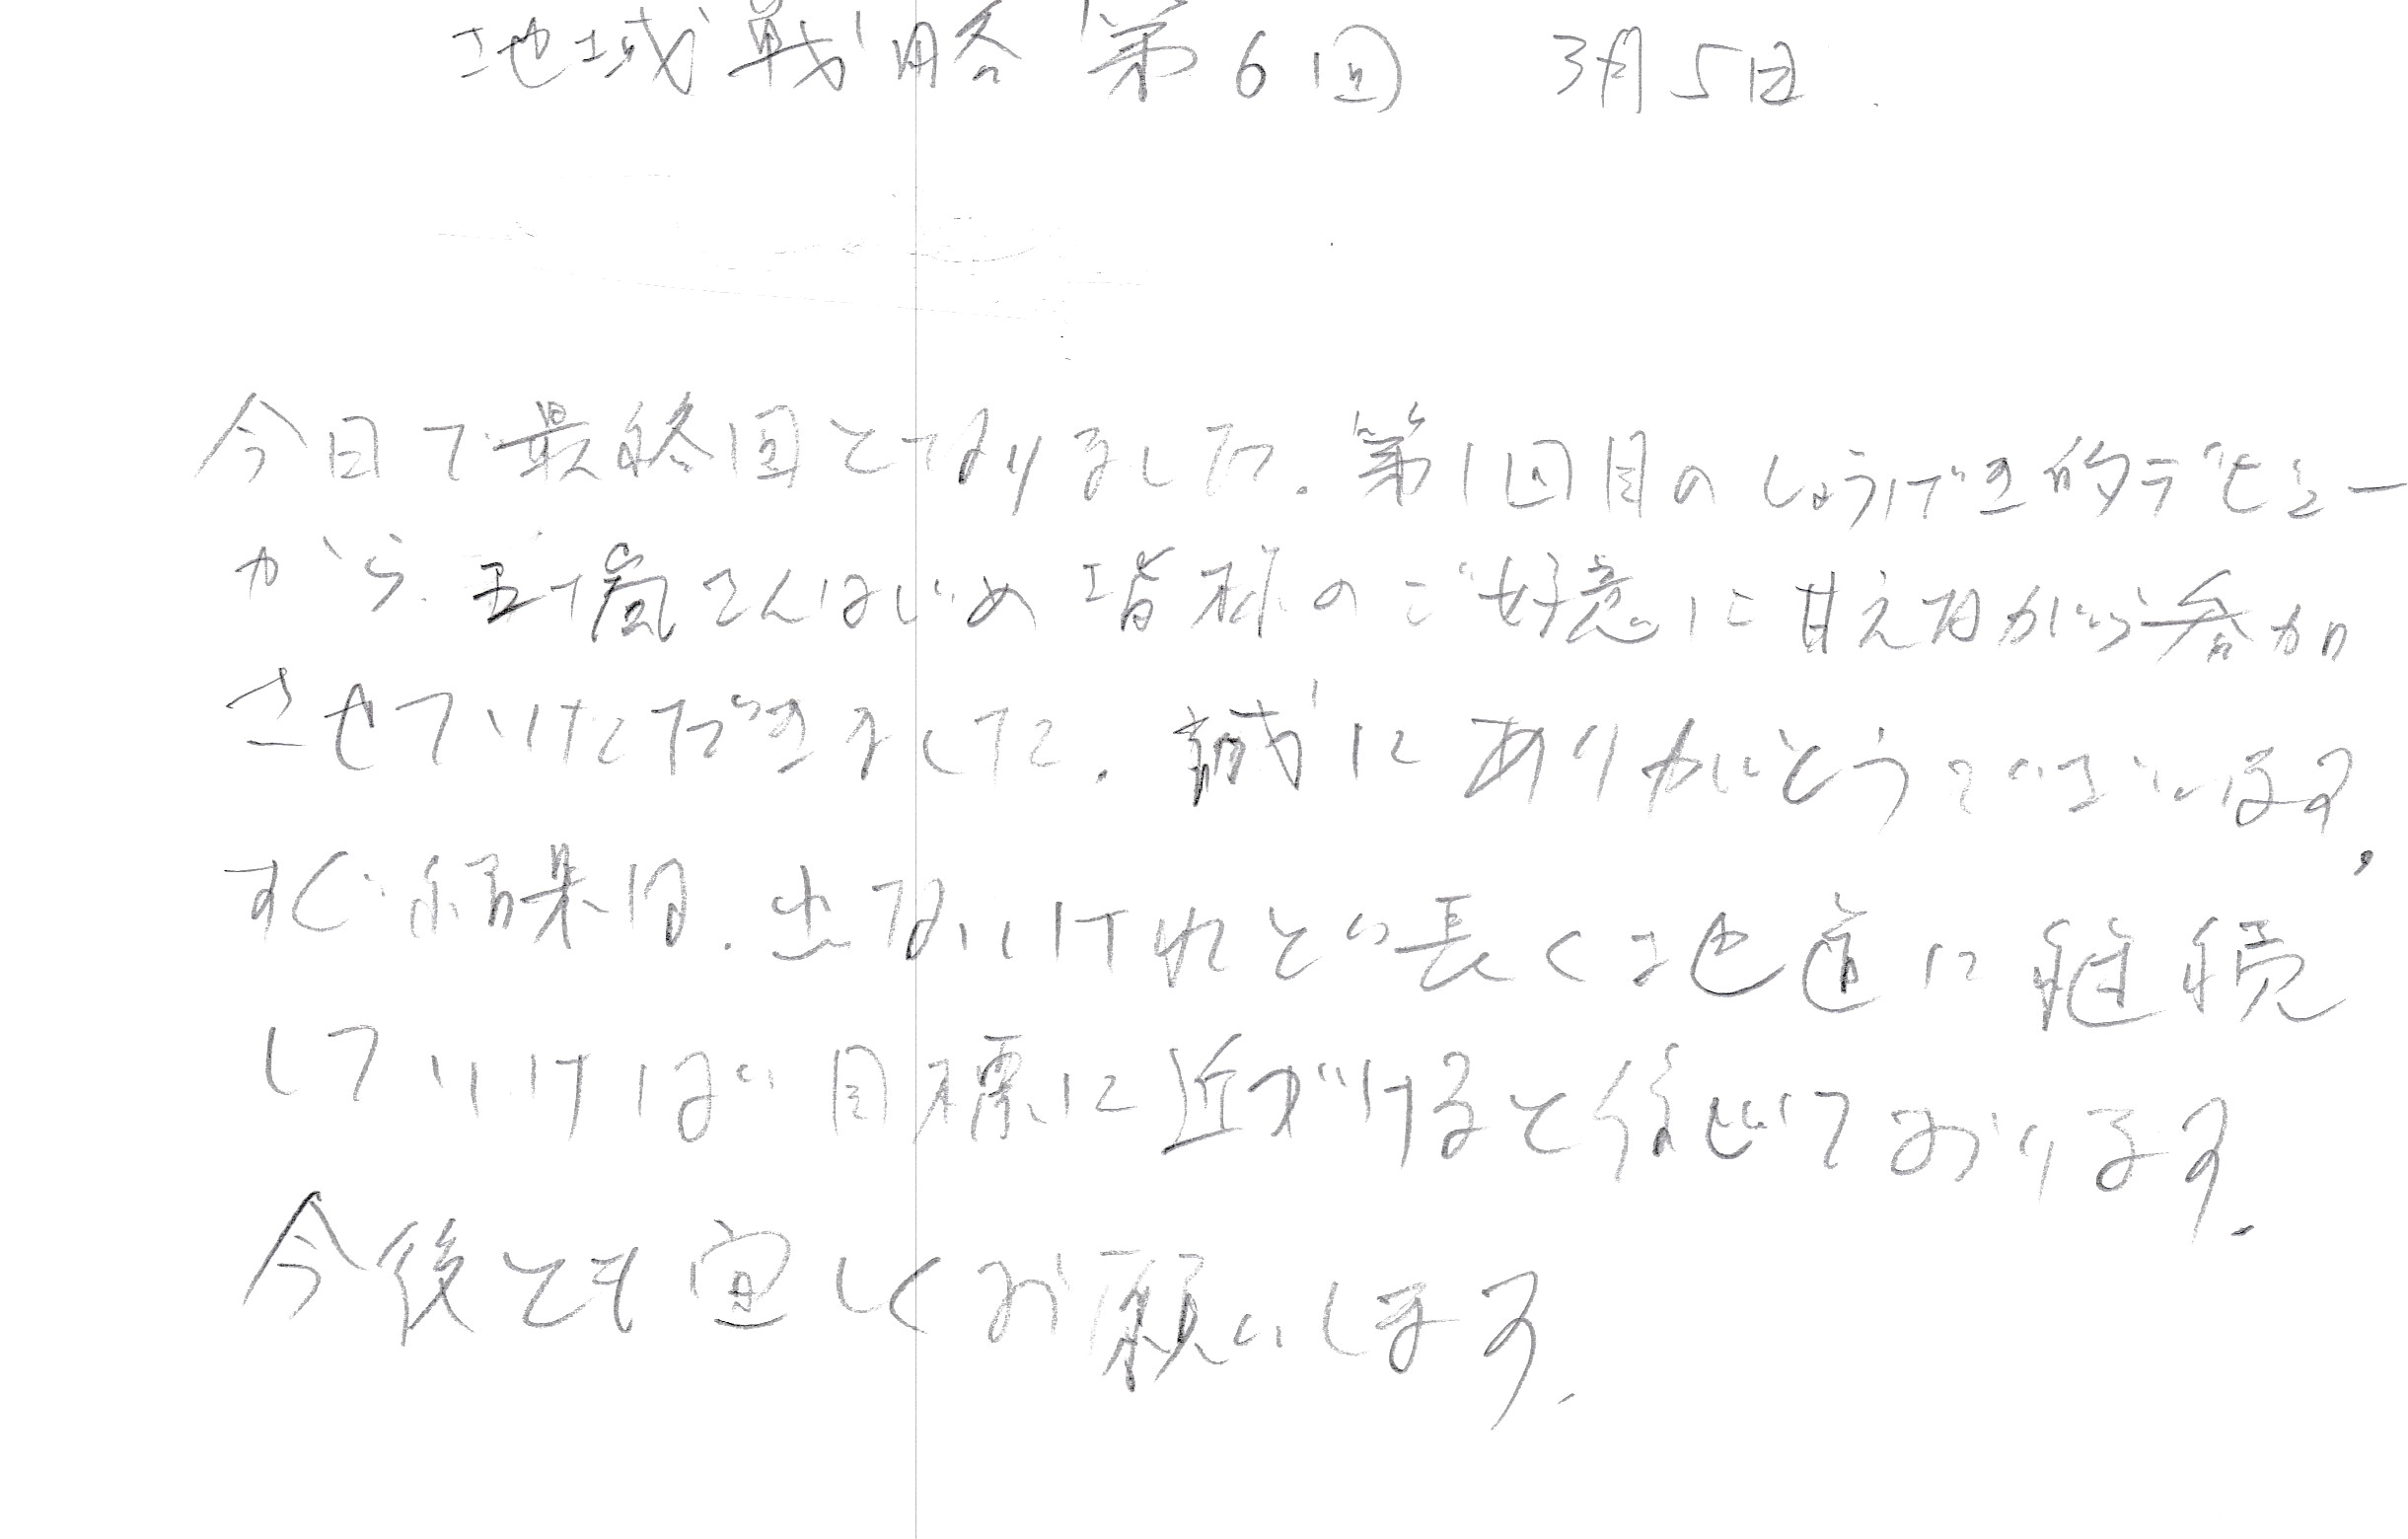 地域戦略第6回 3月5日.
今日で最終回となりました。第1回目のしょうげき的デビュー
から、五十嵐さんはじめ皆様のご好意に甘えながら参加
させていただきました。誠にありがとうございます。
すぐ結果は、出ないけれど長く地道に継続
していけば目標に近づけると信じております。
今後とも宜しくお願いします。